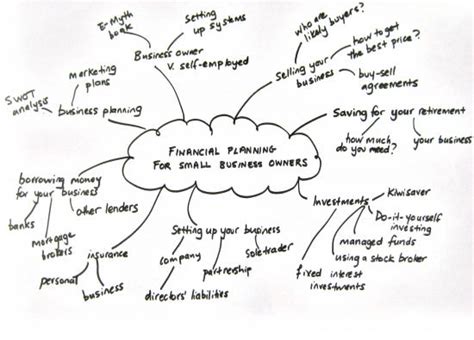 FINANCIAL PLANNING
FOR SMALL BUSINESS OWNERS
E-Myth
book
Setting
up systems
Business owner
V. self-employed
who are
likely buyers?
how to get
the best price?
Selling your
business
buy-sell
agreements
Saving for your retirement
how much
do you need?
your business
Investments
Kiwisaver
Do-it-yourself
investing
managed funds
using a stock broker
fixed interest
investments
Setting up your business
company
partnership
Soletrader
directors' liabilities
insurance
personal
business
borrowing money
for your business
banks
mortgage
brokers
other lenders
business planning
marketing
plans
SWOT
analysis